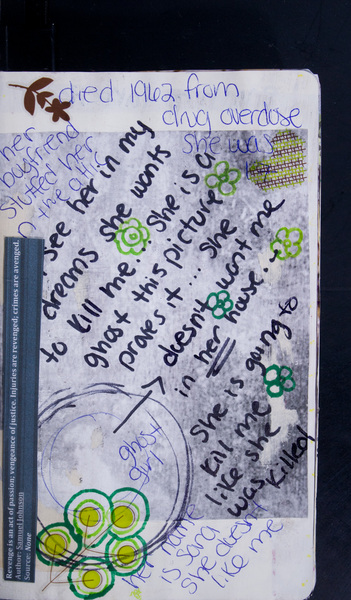 died 1962 from
drug overdose
her
boyfriend
stuffed her
in the attic
she was
I see her in my
dreams she wants
to kill me... she is a
ghost this picture
proves it... she
doesn't want me
in her house...
She is going to
kill me
like she
was killed!
ghost
girl
her name
is sara
she doesn't
like me
Revenge is an act of passion; vengeance of justice. Injuries are revenged; crimes are avenged.
Author: Samuel Johnson
Source: None